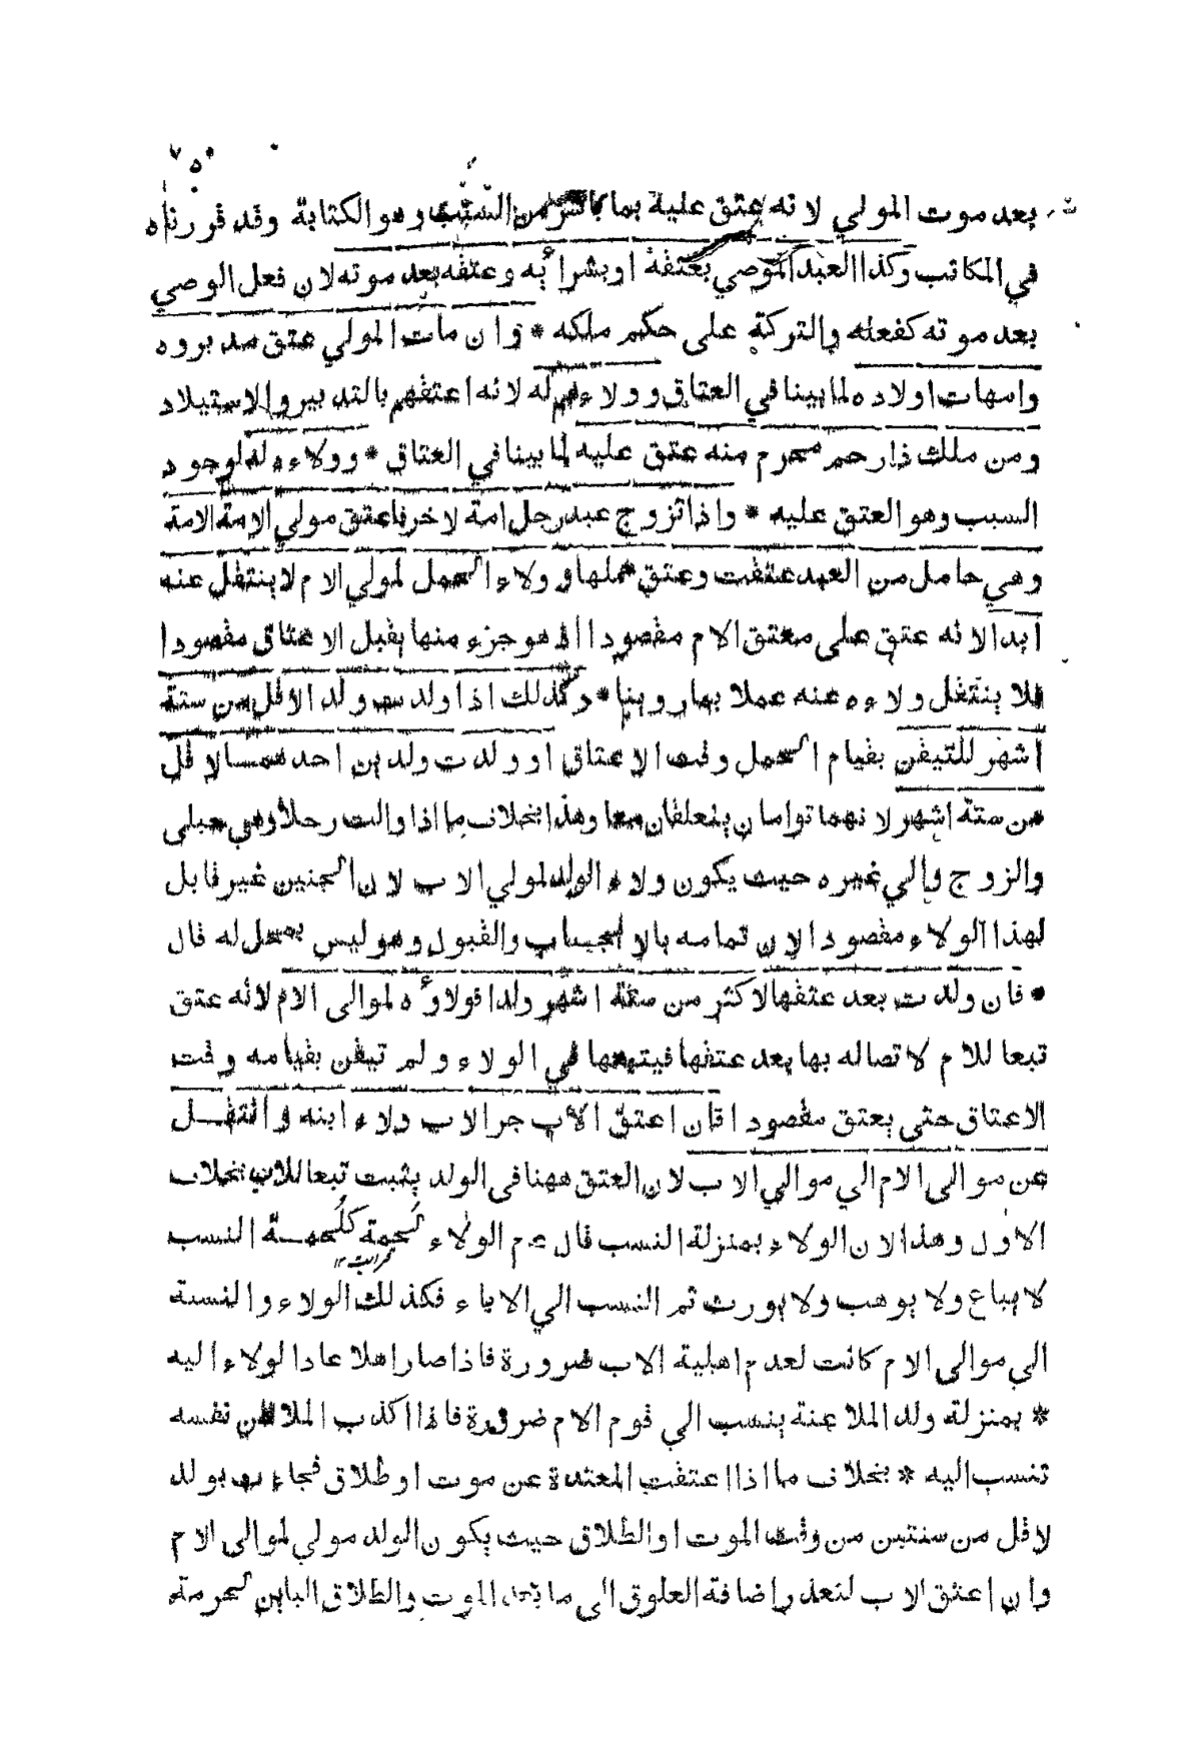 ٧٥
بعد موت المولي لانه عتق عليه بما باشر من السبب وهو الكتابة وقد قررناه
في المكاتب وكذا العبد الموصي بعتقه او بشرائه وعتقه بعد موته لان فعل الوصي
بعد موته كفعله والتركة على حكم ملكه * وان مات المولي عتق مدبروه
وامهات اولاده لما بينا في العتاق وولاءهم له لانه اعتقهم بالتدبير والاستيلاد
ومن ملك ذا رحم محرم منه عتق عليه لما بينا في العتاق * وولاءه له لوجود
السبب وهو العتق عليه * واذا تزوج عبد رجل امة لاخر فاعتق مولي الامة الامة
وهي حامل من العبد عتقت وعتق حملها وولاء الحمل لمولي الام لا ينتقل عنه
ابدا لانه عتق على معتق الام مقصودا اذ هو جزء منها يقبل الاعتاق مقصودا
فلا ينتقل ولاءه عنه عملا بما روينا * وكذلك اذا ولدت ولدا لاقل من ستة
اشهر للتيقن بقيام الحمل وقت الاعتاق او ولدت ولدين احدهما لاقل
من ستة اشهر لانهما توامان يتعلقان معا وهذا بخلاف ما اذا والت رجلا وهي حبلى
والزوج والي غيره حيث يكون ولاء الولد لمولي الاب لان الجنين غير قابل
لهذا الولاء مقصودا لان تمامه بالايجاب والقبول وهو ليس بمحل له قال
* فان ولدت بعد عتقها لاكثر من ستة اشهر ولدا فولاؤه لموالى الام لانه عتق
تبعا للام لاتصاله بها بعد عتقها فيتبعها في الولاء ولم تيقن بقيامه وقت
الاعتاق حتى يعتق مقصودا فان اعتق الاب جر الاب ولاء ابنه وانتقل
عن موالى الام الي موالي الاب لان العتق ههنا فى الولد يثبت تبعا للاب بخلاف
الاول وهذا لان الولاء بمنزلة النسب قال عم الولاء لحمة كلحمة النسب
لا يباع ولا يوهب ولا يورث ثم النسب الي الاباء فكذلك الولاء والنسبة
الي موالى الام كانت لعدم اهلية الاب ضرورة فاذا صار اهلا عاد الولاء اليه
* بمنزلة ولد الملاعنة ينسب الي قوم الام ضرورة فاذا اكذب الملاعن نفسه
تنسب اليه * بخلاف ما اذا اعتقت المعتدة عن موت او طلاق فجاءت بولد
لاقل من سنتين من وقت الموت او الطلاق حيث يكون الولد مولي لموالى الام
وان اعتق الاب لتعذر اضافة العلوق الى ما بعد الموت والطلاق الباين لحرمة